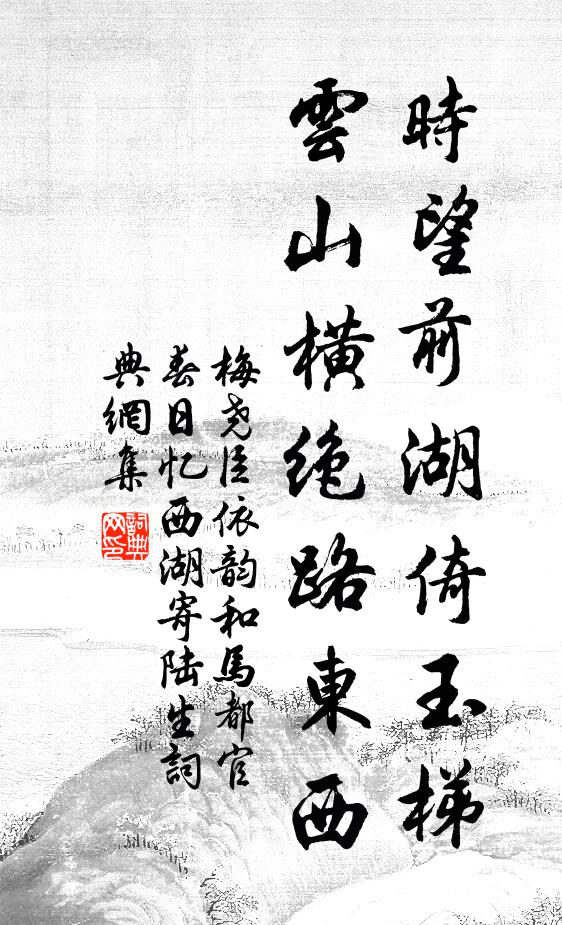 時望前湖倚玉梯
雲山橫绝路東西
梅尧臣依韵和馬都官
春日忆西湖寄陆生詞
典網集
詞典
网印